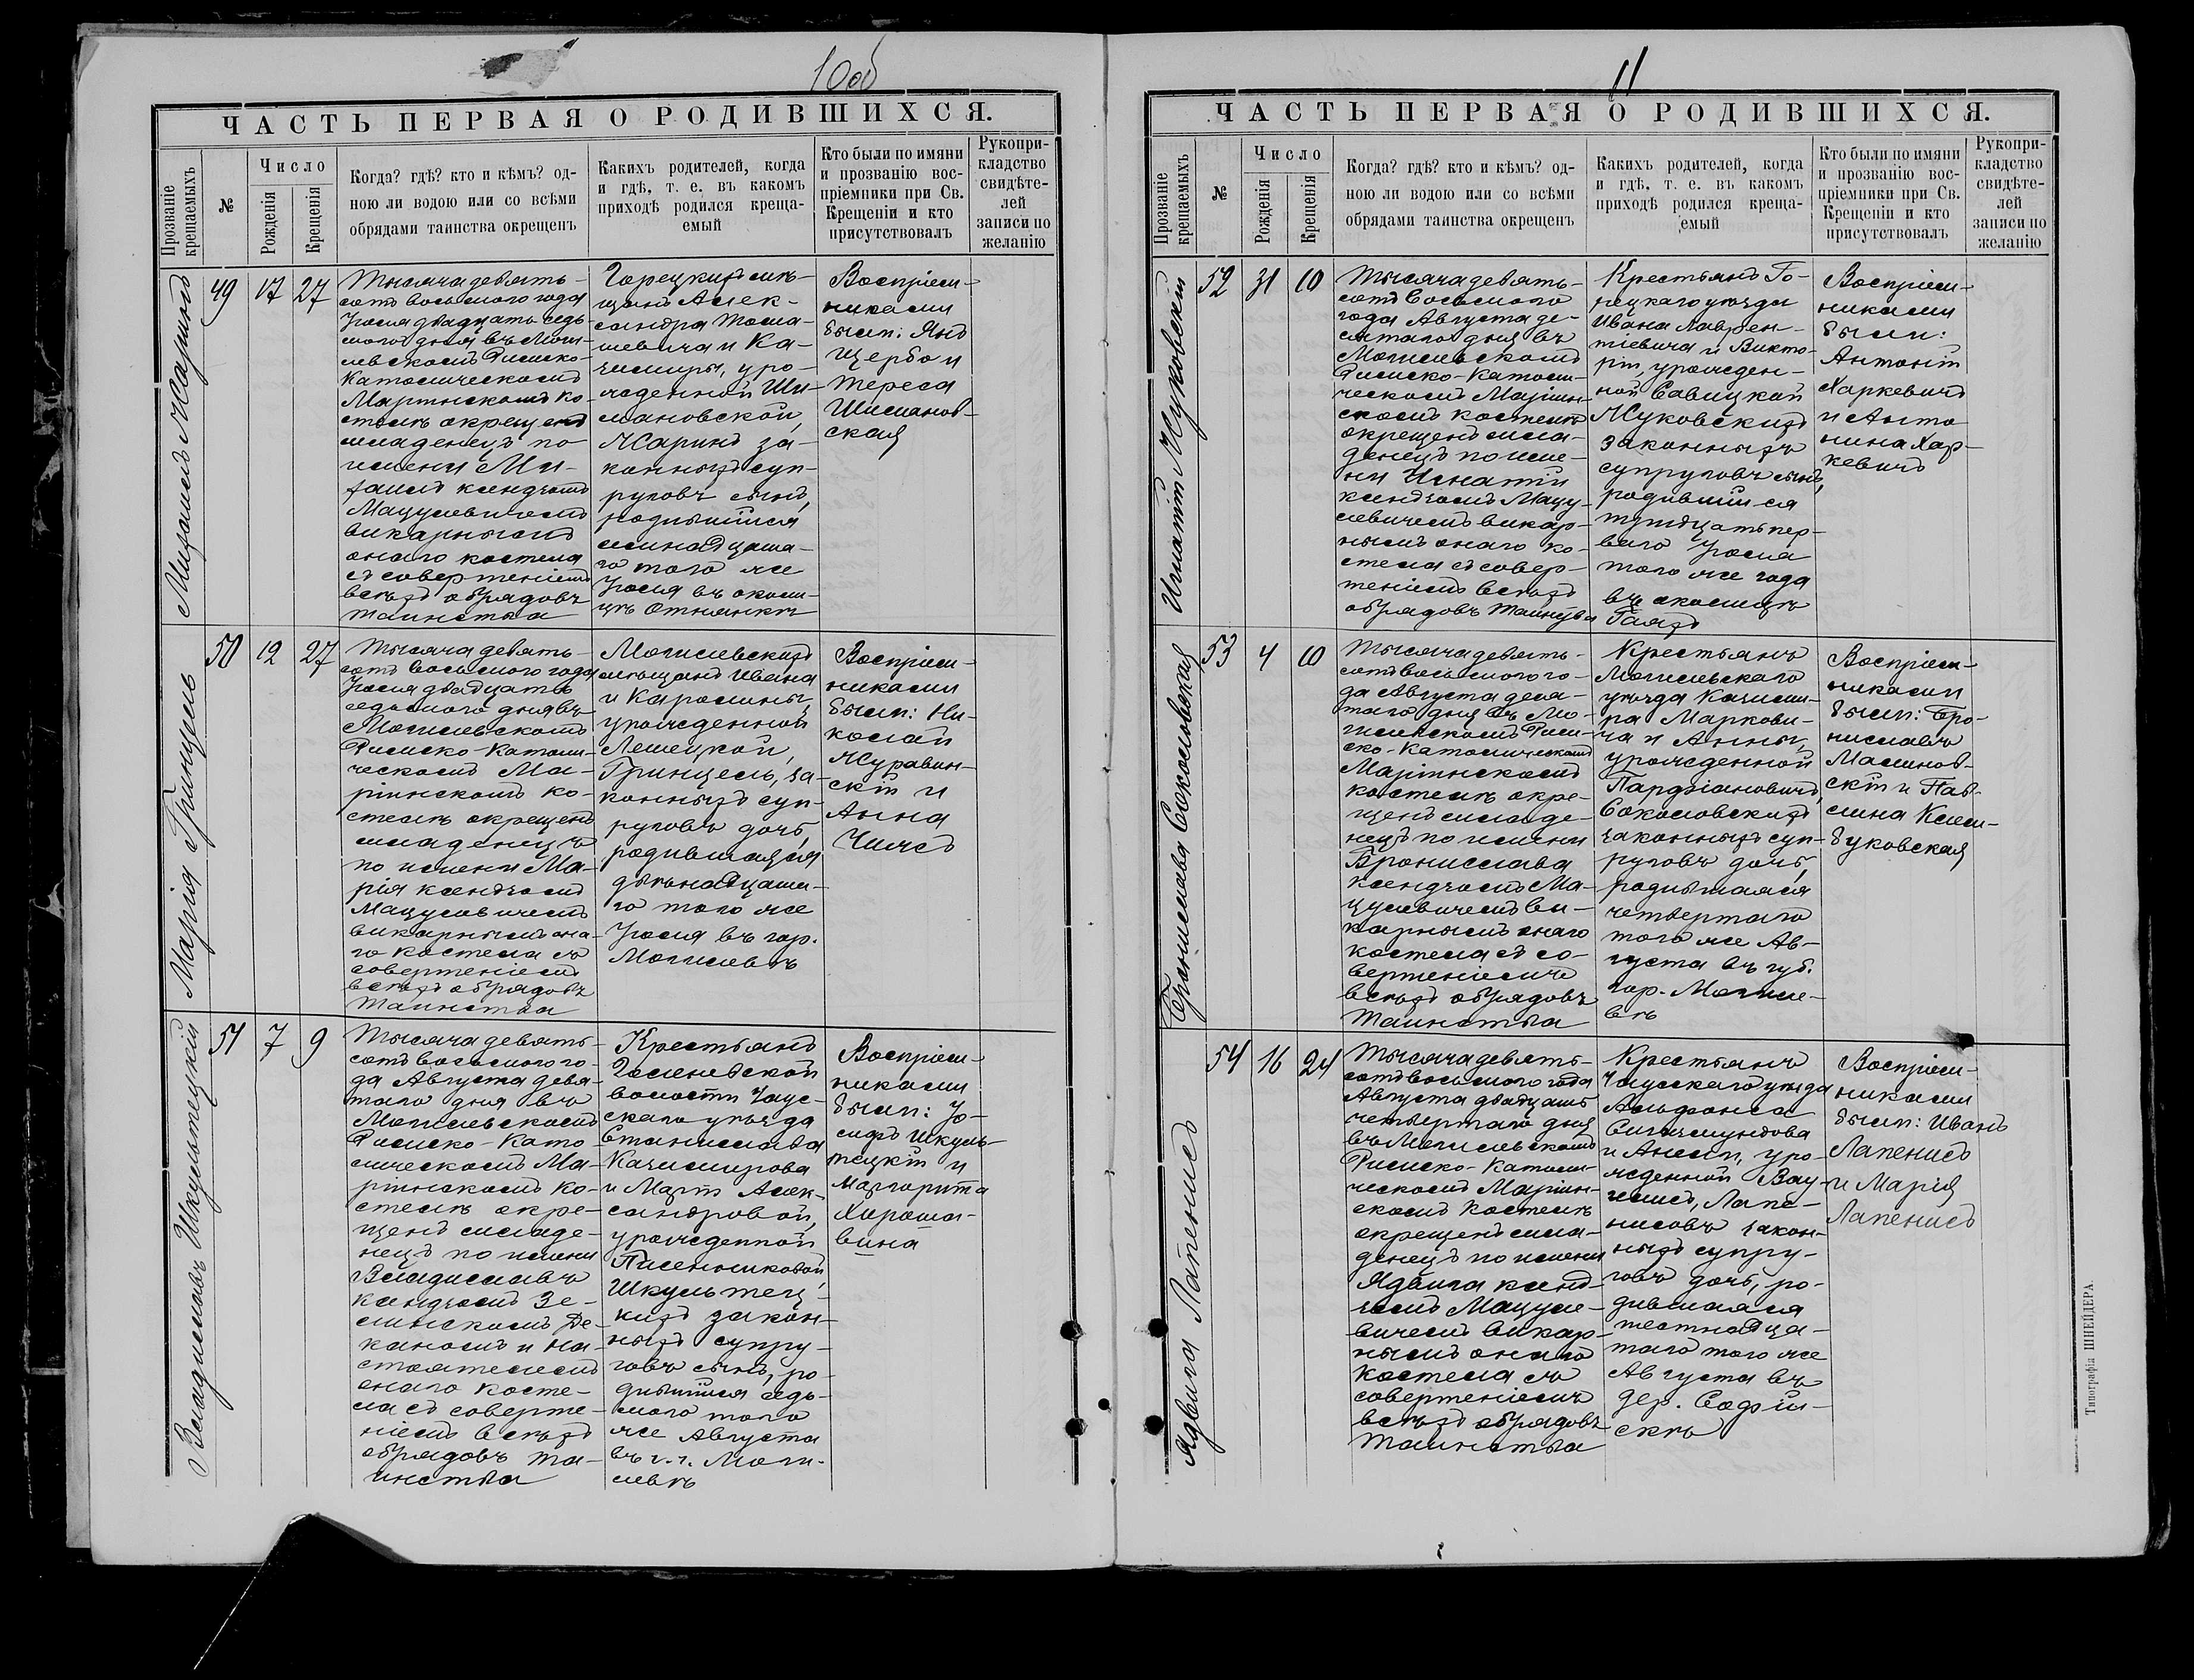 10об
ЧАСТЬ ПЕРВАЯ О РОДИВШИХСЯ.
Прозваніе
крещаемыхъ
№
Число
Рожденія
Крещенія
Когда? гдѣ? кто и кѣмъ? од-
ною ли водою или со всѣми
обрядами таинства окрещенъ
Какихъ родителей, когда
и гдѣ, т. е. въ какомъ
приходѣ родился креща-
емый
Кто были по имяни
и прозванію вос-
пріемники при Св.
Крещеніи и кто
присутствовалъ
Рукопри-
кладство
свидѣте-
лей
записи по
желанію
Михаилъ Жаринъ
49
17
27
Тысяча девять-
сотъ восьмого года
Іюля двадцать седь-
мого дня въ Моги-
левскомъ Римско-
Католическомъ
Маріинскомъ ко-
стелѣ окрещенъ
младенецъ по
имени Ми-
хаилъ ксендзомъ
Мацулевичемъ
викарнымъ
онаго костела
съ совершеніемъ
всѣхъ обрядовъ
таинства
Горецкихъ мѣ-
щанъ Алек-
сандра Тома-
шевича и Ка-
зимиры, уро-
жденной Ши-
мановской,
Жаринъ за-
конныхъ суп-
руговъ сынъ,
родившійся
семнадцата-
го того же
Іюля въ околи-
цѣ Отнянкѣ
Воспріем-
никами
были: Янъ
Щербо и
Тереса
Шиманов-
ская
Марія Гринцель
50
12
27
Тысяча девять-
сотъ восьмого года
Іюля двадцать
седьмого дня въ
Могилевскомъ
Римско-Католи-
ческомъ Ма-
ріинскомъ ко-
стелѣ окрещенъ
младенецъ
по имени Ма-
рія ксендзомъ
Мацулевичемъ
викарнымъ она-
го костела съ
совершеніемъ
всѣхъ обрядовъ
таинства
Могилевскихъ
мѣщанъ Ивана
и Каролины,
урожденной
Лешецкой,
Гринцель, за-
конныхъ суп-
руговъ дочь,
родившаяся
двѣнадцата-
го того же
Іюля въ гор.
Могилевѣ
Воспріем-
никами
были: Ни-
колай
Журавин-
скій и
Анна
Чижъ
Владиславъ Шкультецкій
51
7
9
Тысяча девять-
сотъ восьмого го-
да Августа девя-
таго дня въ
Могилевскомъ
Римско-Като-
лическомъ Ма-
ріинскомъ ко-
стелѣ окре-
щенъ младе-
нецъ по имени
Владиславъ
ксендзомъ Зе-
линскомъ Де-
каномъ и на-
стоятелемъ
онаго косте-
ла съ соверше-
ніемъ всѣхъ
обрядовъ та-
инства
Крестьянъ
Голеневской
волости Чаус-
скаго уѣзда
Станислава
Казимирова
и Маріи Алек-
сандровой,
урожденной
Писенниковой,
Шкультец-
кихъ закон-
ныхъ супру-
говъ сынъ, ро-
дившійся седь-
мого того
же Августа
въ г. г. Моги-
левѣ
Воспріем-
никами
были: Іо-
сифъ Шкуль-
тецкій и
Маргарита
Хороша-
вина
11
ЧАСТЬ ПЕРВАЯ О РОДИВШИХСЯ.
Прозваніе
крещаемыхъ
№
Число
Рожденія
Крещенія
Когда? гдѣ? кто и кѣмъ? од-
ною ли водою или со всѣми
обрядами таинства окрещенъ
Какихъ родителей, когда
и гдѣ, т. е. въ какомъ
приходѣ родился креща-
емый
Кто были по имяни
и прозванію вос-
пріемники при Св.
Крещеніи и кто
присутствовалъ
Рукопри-
кладство
свидѣте-
лей
записи по
желанію
Игнатій Жуковскій
52
31
10
Тысяча девять-
сотъ восьмого
года Августа де-
сятаго дня въ
Могилевскомъ
Римско-Католи-
ческомъ Маріин-
скомъ костелѣ
окрещенъ мла-
денецъ по име-
ни Игнатій
ксендзомъ Мацу-
левичемъ викар-
нымъ онаго ко-
стела съ совер-
шеніемъ всѣхъ
обрядовъ таинства
Крестьянъ Го-
рецкаго уѣзда
Ивана Лаврен-
тіевича и Викто-
ріи, урожден-
ной Савицкой
Жуковскихъ
законныхъ
супруговъ сынъ,
родившійся
тридцать пер-
ваго Іюля
того же года
въ околицѣ
Гаяхъ
Воспріем-
никами
были:
Антоній
Харкевичъ
и Анто
нина Хар-
кевичъ
Бронислава Соколовская
53
4
10
Тысяча девять-
сотъ восьмого го-
да Августа деся-
таго дня въ Мо-
гилевскомъ Рим-
ско-Католическомъ
Маріинскомъ
костелѣ окре-
щенъ младе-
нецъ по имени
Бронислава
ксендзомъ Ма-
цулевичемъ ви-
карнымъ онаго
костела съ со-
вершеніемъ
всѣхъ обрядовъ
таинства
Крестьянъ
Могилевскаго
уѣзда Казими-
ра Маркови-
ча и Анны,
урожденной
Пардзіановичъ,
Соколовскихъ
законныхъ суп-
руговъ дочь,
родившаяся
четвертаго
того же Ав-
густа въ губ.
гор. Могиле-
вѣ
Воспріем-
никами
были: Бро-
ниславъ
Малинов-
скій и Пав-
лина Клим-
буковская
Ядвига Лапенисъ
54
16
24
Тысяча девять-
сотъ восьмого года
Августа двадцать
четвертаго дня
въ Могилевскомъ
Римско-Католи-
ческомъ Маріин-
скомъ костелѣ
окрещенъ мла-
денецъ по имени
Ядвига ксенд-
зомъ Мацуле-
вичемъ викар-
нымъ онаго
костела съ
совершеніемъ
всѣхъ обрядовъ
таинства
Крестьянъ
Чаусскаго уѣзда
Альфонса
Сигизмундова
и Анели, уро-
жденной Вау-
Лапе-
нисовъ закон-
ныхъ супру-
говъ дочь, ро-
дившаяся
шестнадца-
таго того же
Августа въ
дер. Софій-
скѣ
Воспріем-
никами
были: Иванъ
Лапенисъ
и Марія
Лапенисъ
Типографія ШНЕЙДЕРА.